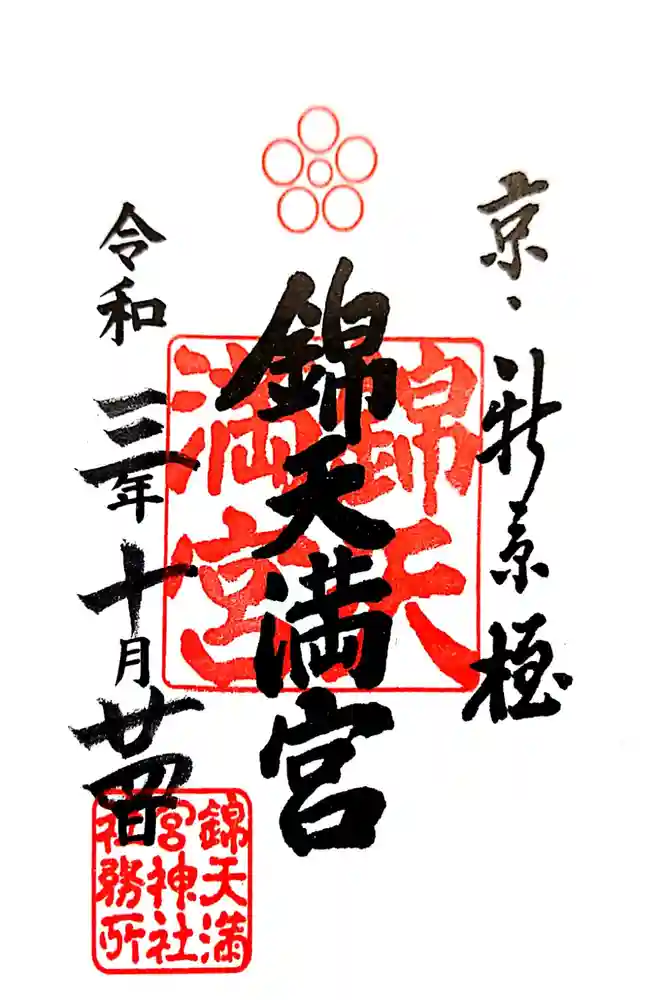 京・新京極
錦天満宮
錦天
満宮
令和三年十月廿四日
錦天満
宮神社
社務所